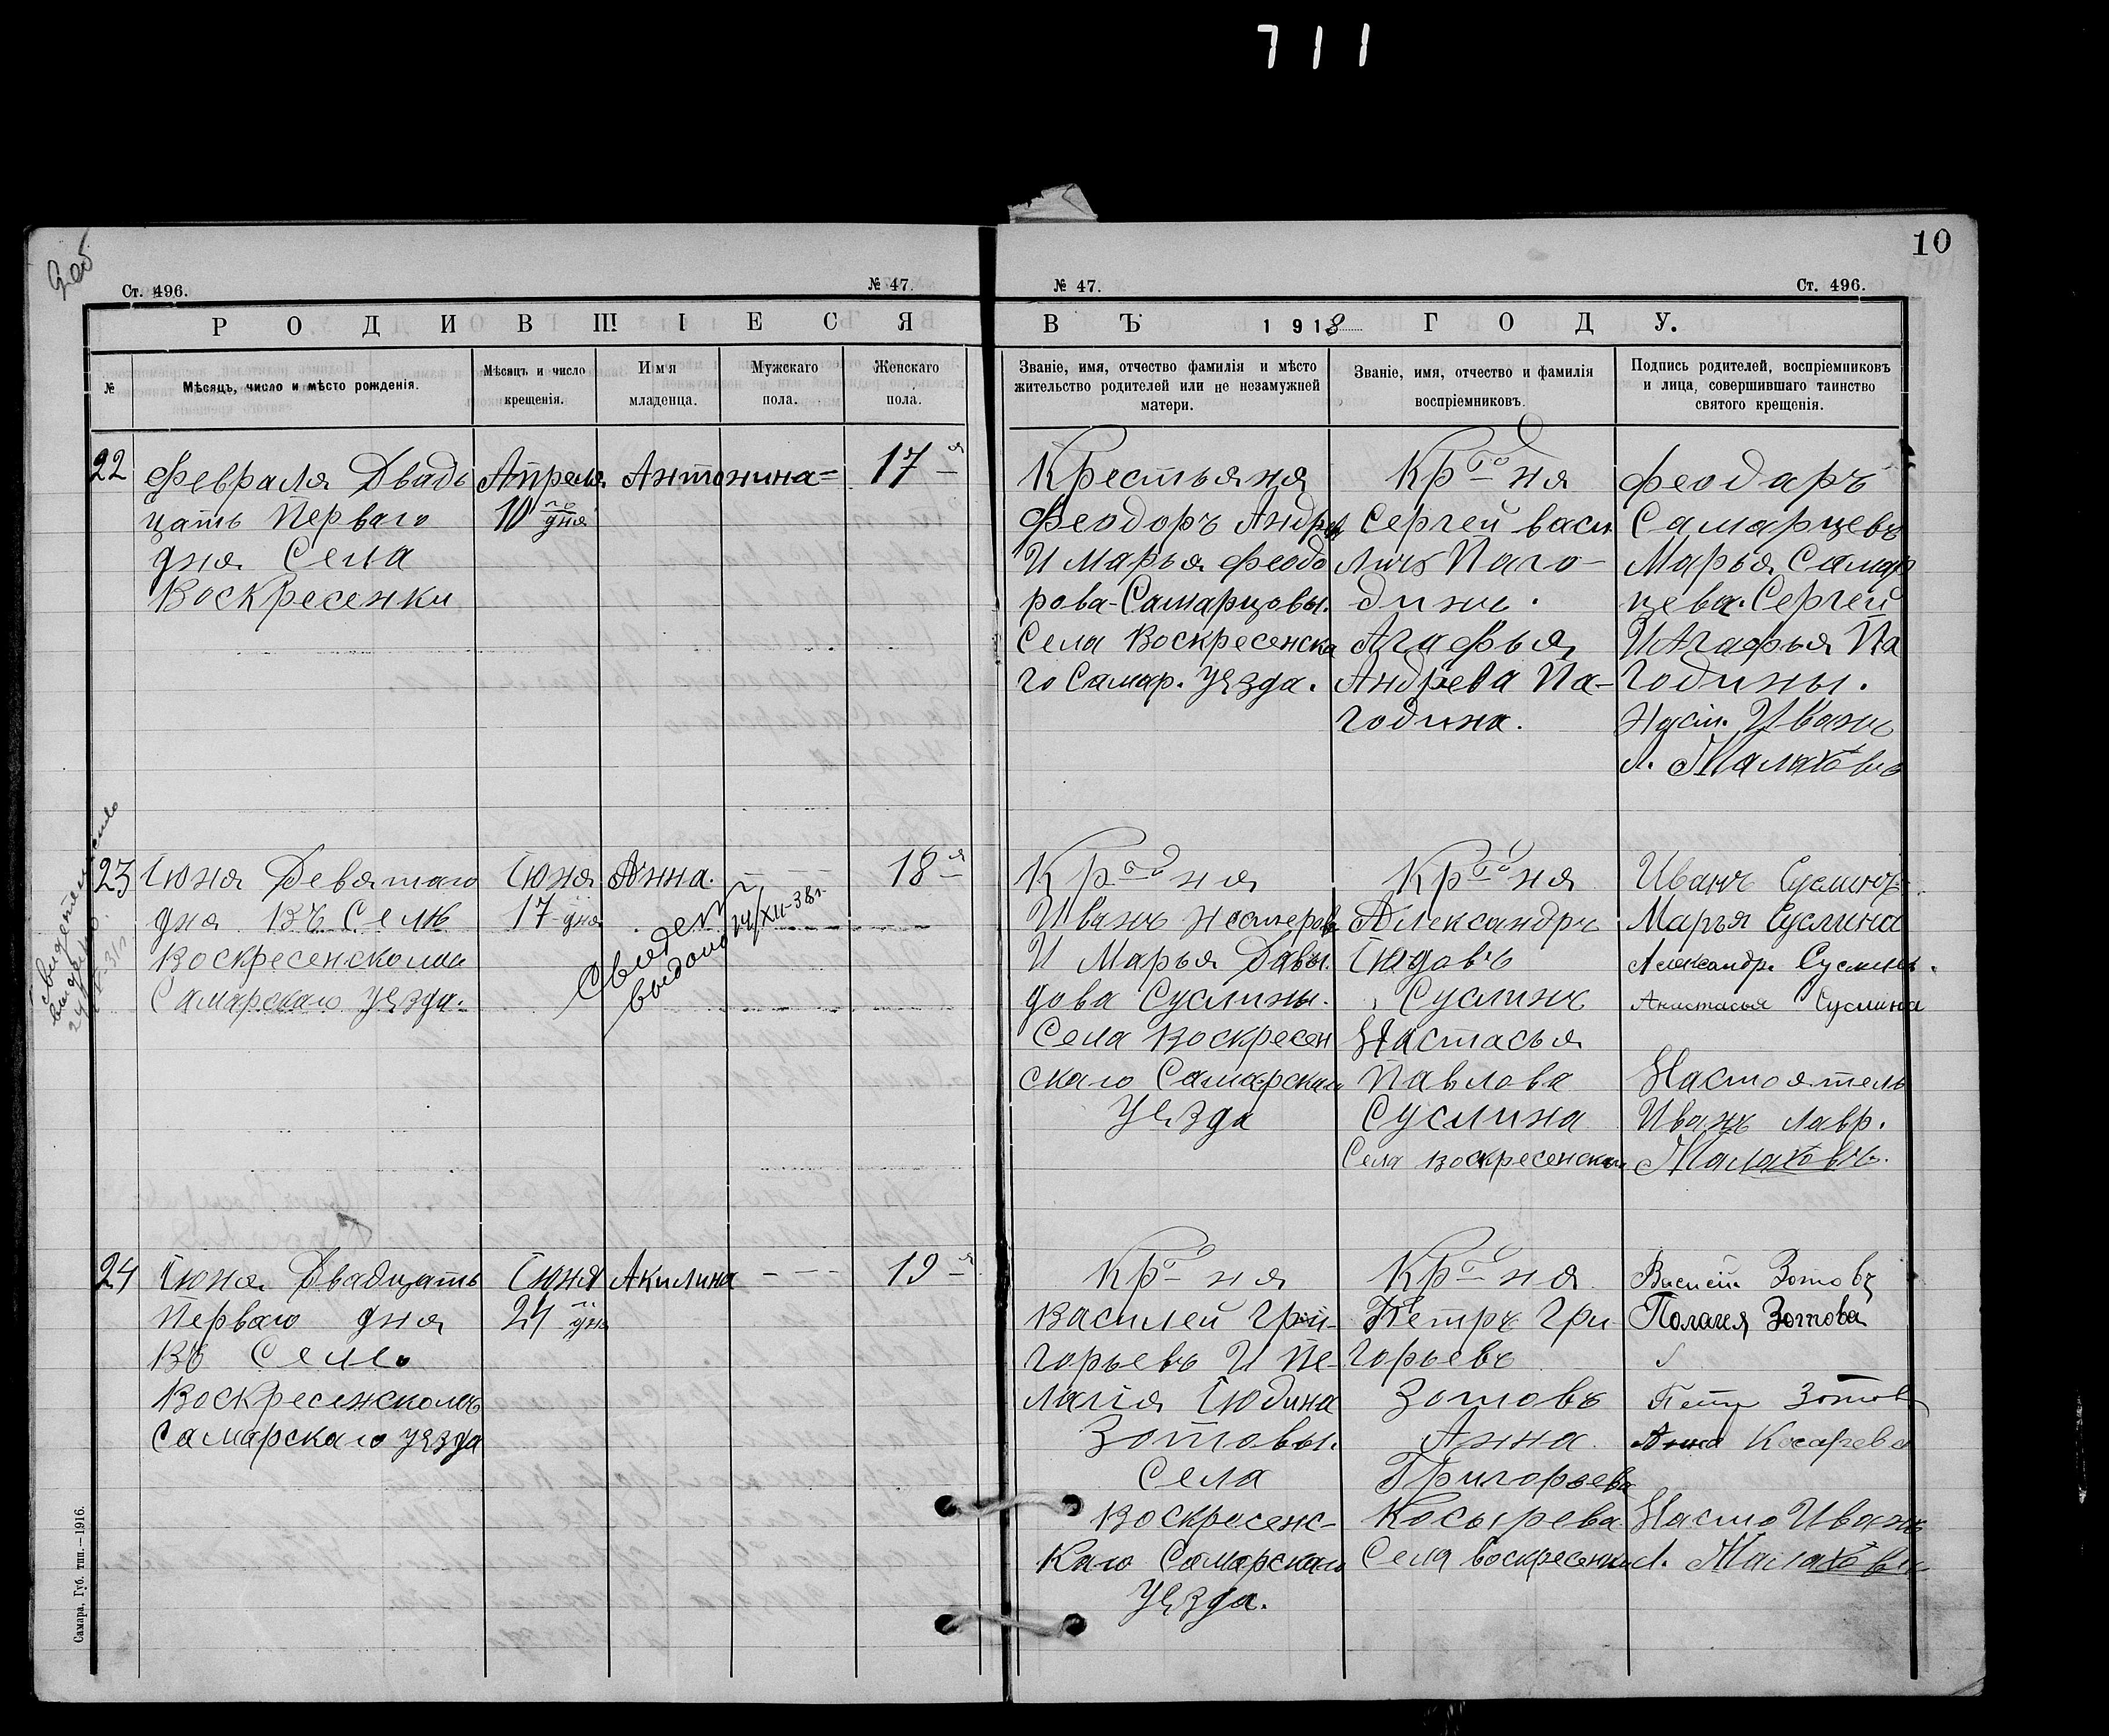 711
10
Ст. 496.
№ 47.
№ 47.
Ст. 496.
РОДИВШІЕСЯ
ВЪ 1918 ГОДУ.
№
Мѣсяцъ, число и мѣсто рожденія.
Мѣсяцъ и число
крещенія.
Имя
младенца.
Мужскаго
пола.
Женскаго
пола.
Званіе, имя, отчество фамилія и мѣсто
жительство родителей или не незамужней
матери.
Званіе, имя, отчество и фамилія
воспріемниковъ.
Подпись родителей, воспріемниковъ
и лица, совершившаго таинство
святого крещенія.
22
Февраля Двадь
цать Перваго
дня Села
Воскресенки
Апреля
10 го дня
Антонина=
17 я
Крестьяня
Феодоръ Андрев
И Марья Феодо
рова-Самарцовы.
Села Воскресенска
го Самар. Уѣзда.
Кр го ня
Сергей васи
личъ Паго-
динъ.
Агафья
Андрева Па-
година.
Феодаръ
Самарцевъ
Марья Самар
цева. Сергей
И Агафья Па
годины.
Наст. Иванъ
Л. Малаховъ
23
Іюня Девятаго
дня Въ Селѣ
Воскресенскома
Самарскаго Уѣзда.
Іюня
17-дня
Анна.
18 я
Свидет
выдано 24/XII-38г.
Кр го ня
Иванъ
И Марья Давы
дова Суслины.
Села Воскресен
скаго Самарскаго
Уѣзда
Кр го ня
Александръ
Іюдовъ
Суслинъ
Настасья
Павлова
Суслина
Села Воскресенскаго
Иванъ Суслинъ
Марья Суслина
Александр. Суслинъ.
Анастасья Суслина
Настоятель
Иванъ Лавр.
Малаховъ.
24
Іюня Двадцать
Перваго дня
Въ Селѣ
Воскресенскомъ
Самарскаго Уѣзда
Іюня
24 дня
Акилина
19 я
Кр го ня
Василей Гри-
горьевъ И Пе-
лагія Іюдина
Зотовы.
Села
Воскресенс-
Каго Самарскаго
Уѣзда.
Кр го ня
Петръ Гри
горьевъ
Зотовъ
Анна
Григорьева
Косырева
Села воскресенки
Васили Зотовъ
Полагея Зотова
Петр Зотов
Анна Косарева
Насто Иванъ
Л. Малаховъ
Самара, Губ. тип.—1916.